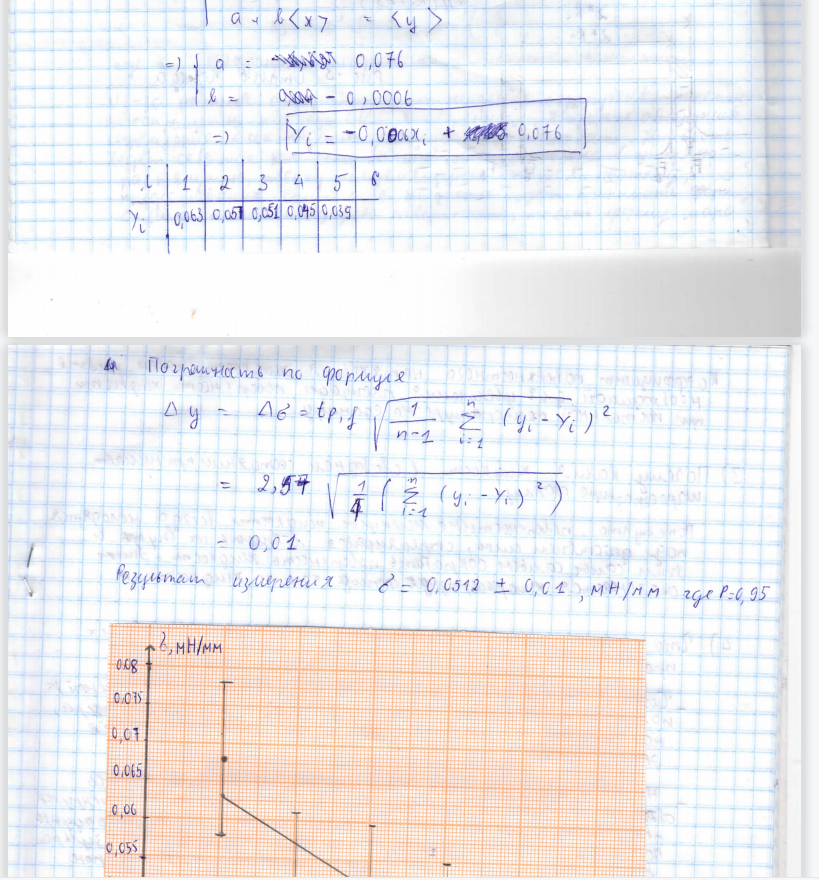 a + b<x> = <y>
=> a = 0,076
b = - 0,0006
=> Yi = -0,0006xi + 0,076
i 1 2 3 4 5 6
Yi 0,063 0,057 0,051 0,045 0,039
Погрешность по формуле
Δy = Δσ = tp,f √ 1/(n-1) Σ i=1 n (yi - Yi)²
= 2,57 √ 1/4 ( Σ i=1 n (yi - Yi)² )
= 0,01
Результат измерения σ = 0,0512 ± 0,01, мН/мм где P=0,95
σ, мН/мм
0,08
0,075
0,07
0,065
0,06
0,055